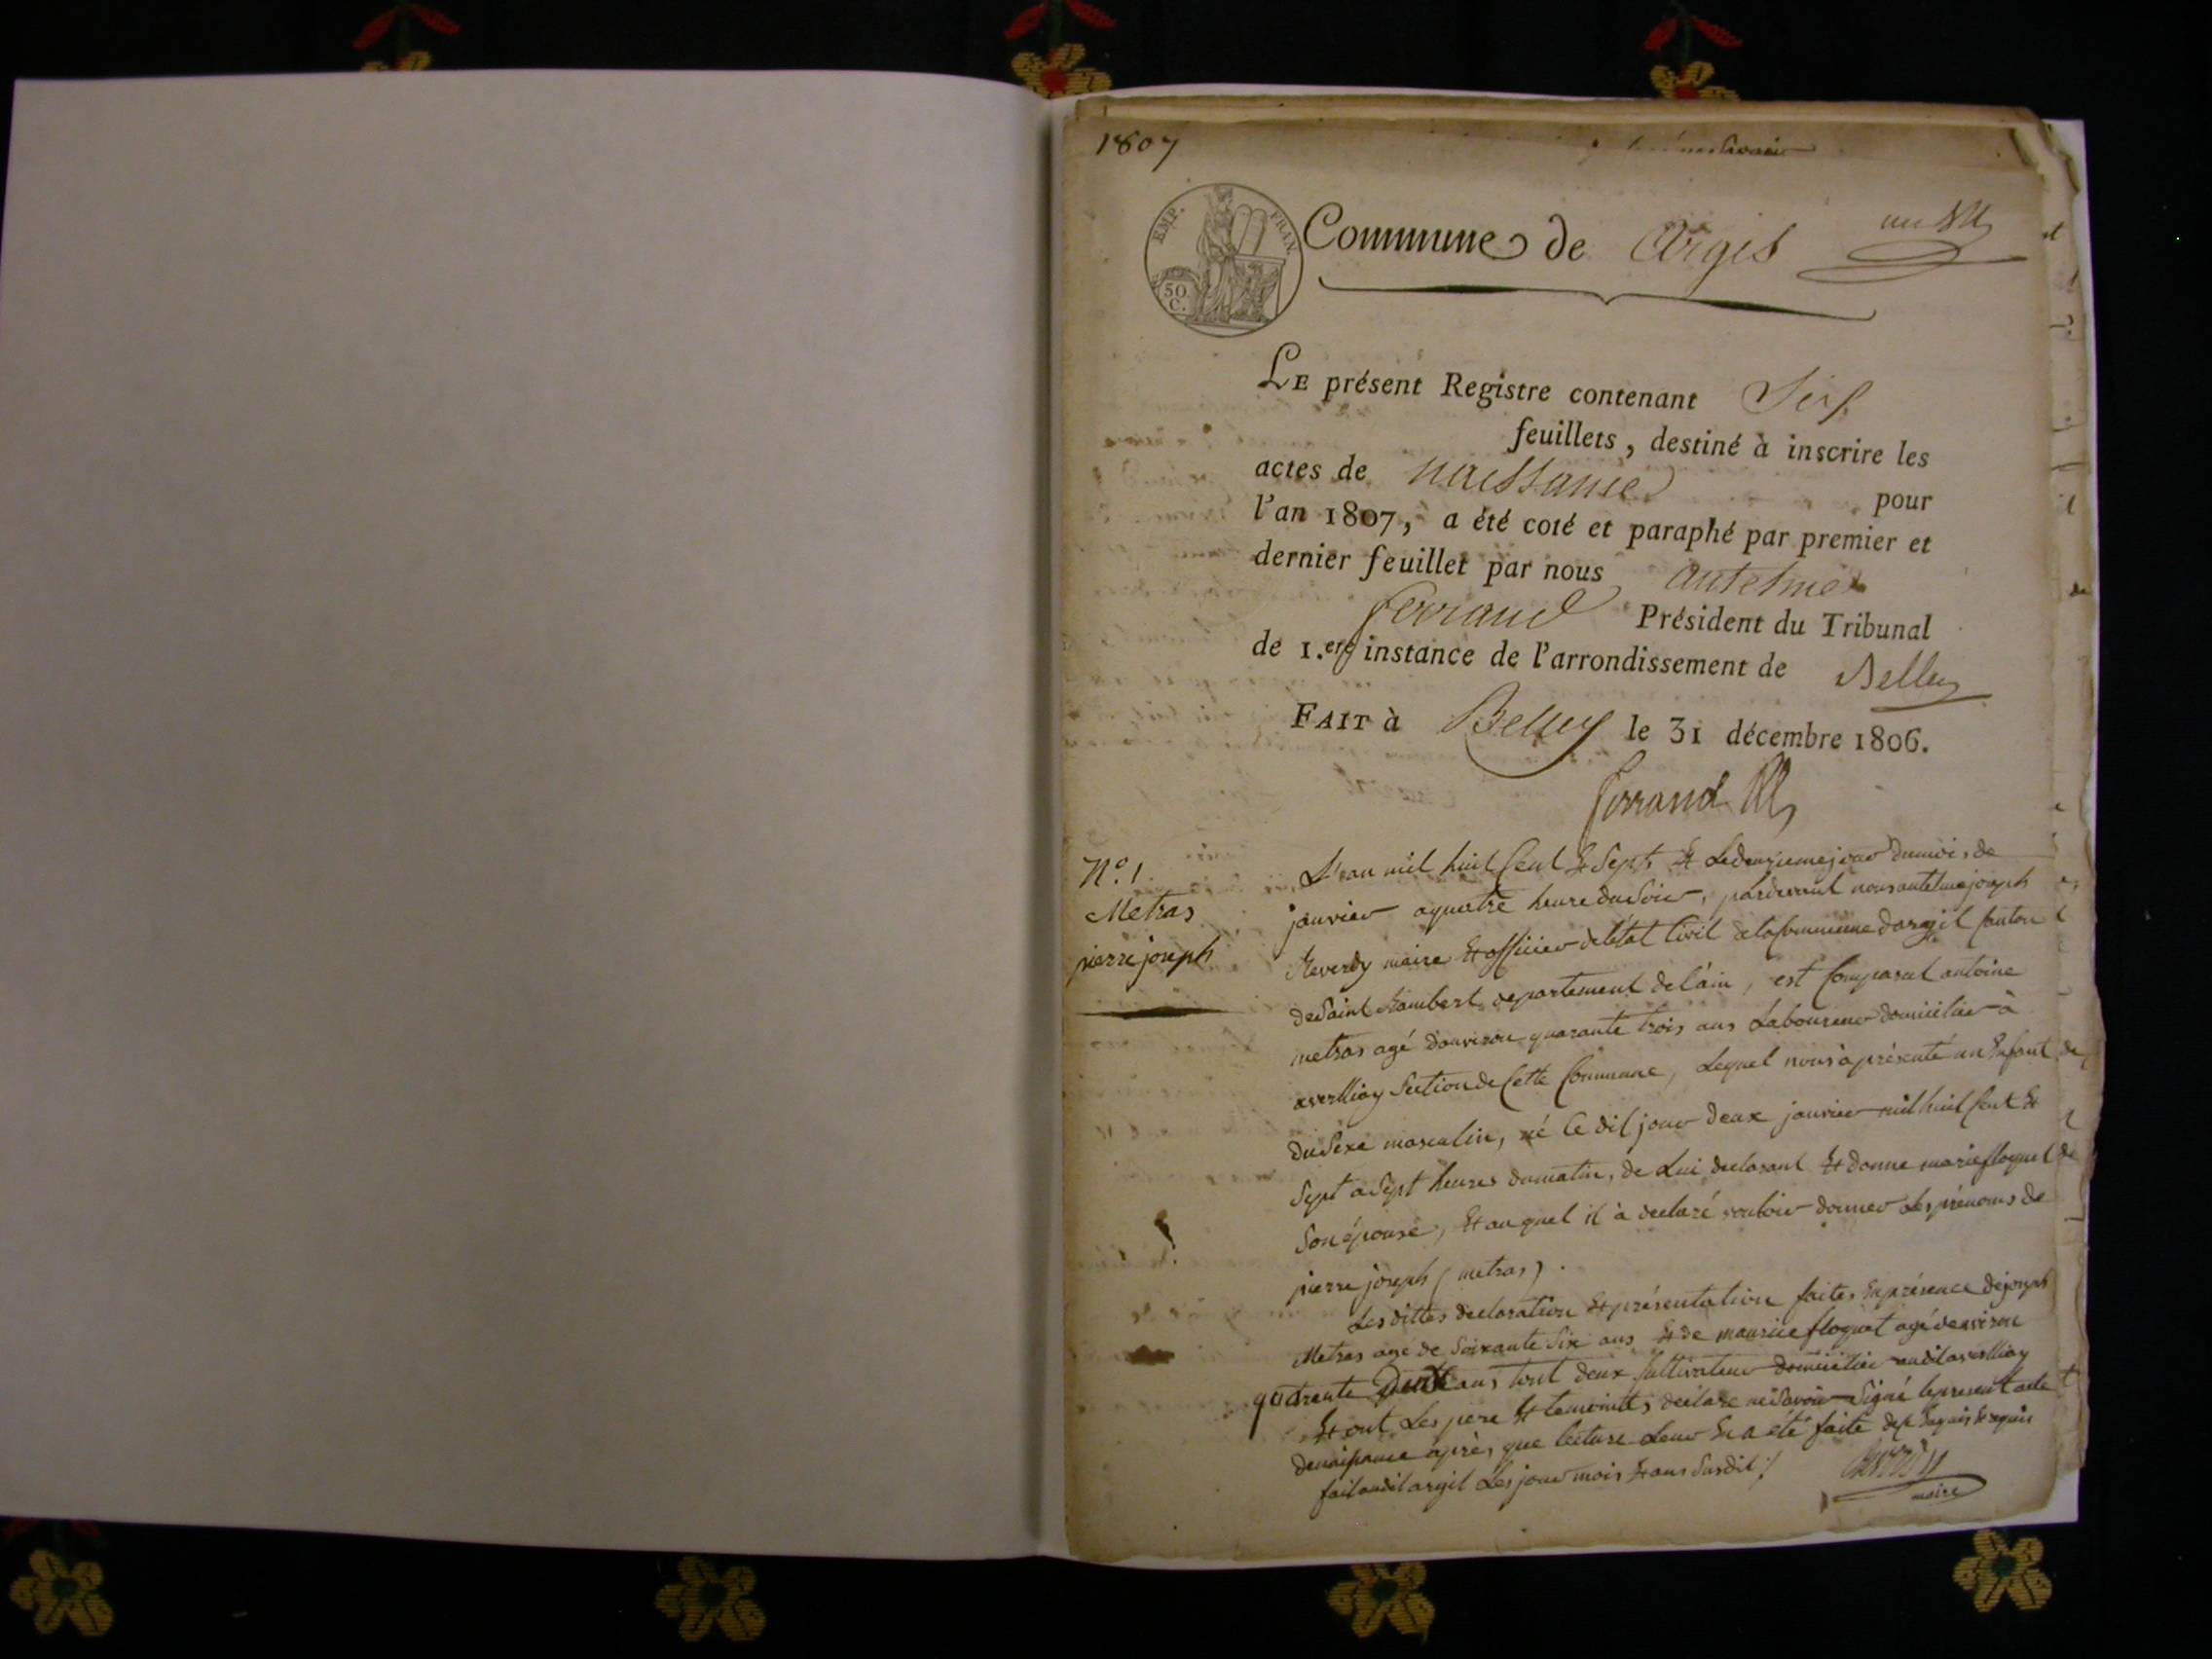 1807
EMP. FRAN.
50
C.
Commune de Argis
LE présent Registre contenant Six
feuillets, destiné à inscrire les
actes de naissance pour
l'an 1807, a été coté et paraphé par premier et
dernier feuillet par nous antelme
ferrand Président du Tribunal
de 1.ere instance de l'arrondissement de Belley
FAIT à Belley le 31 décembre 1806.
ferrand
N.o 1.
Metras
pierre joseph
L'an mil huit Cent & Sept & Le deuxieme jour du mois de
janvier a quatre heure du Soir, pardevant nous antelme joseph
Reverdy maire & officier de l'état Civil de la Commune d'argil Canton
de Saint Rambert departement de l'ain, est Comparut antoine
metras agé d'anviron quarante trois ans Laboureur domicilier à
averlliay Section de Cette Commune, Lequel nous à présenté un Enfant
du Sexe masculin, né Ce dit jour deux janvier mil huit Cent &
Sept a Sept heures du matin, de Lui declarant & donne marie floquet
Son épouse, & au quel il à declaré vouloir donner Les prénoms de
pierre joseph (metras).
Les dittes declaration & présentation faites En présence de joseph
Metras age de Soixante Six ans & de maurice floquet agé denviron
quarente Deux ans tout deux Cultivateur domicilier audit averlliay
& ont Les pere & temoints déclare ne Savoir Signé le present acte
de naissance après que lecture Leur En a été faite de ce Enquis & requis
fait audit argil Les jour mois & ans Susdit ./
Reverdy
maire